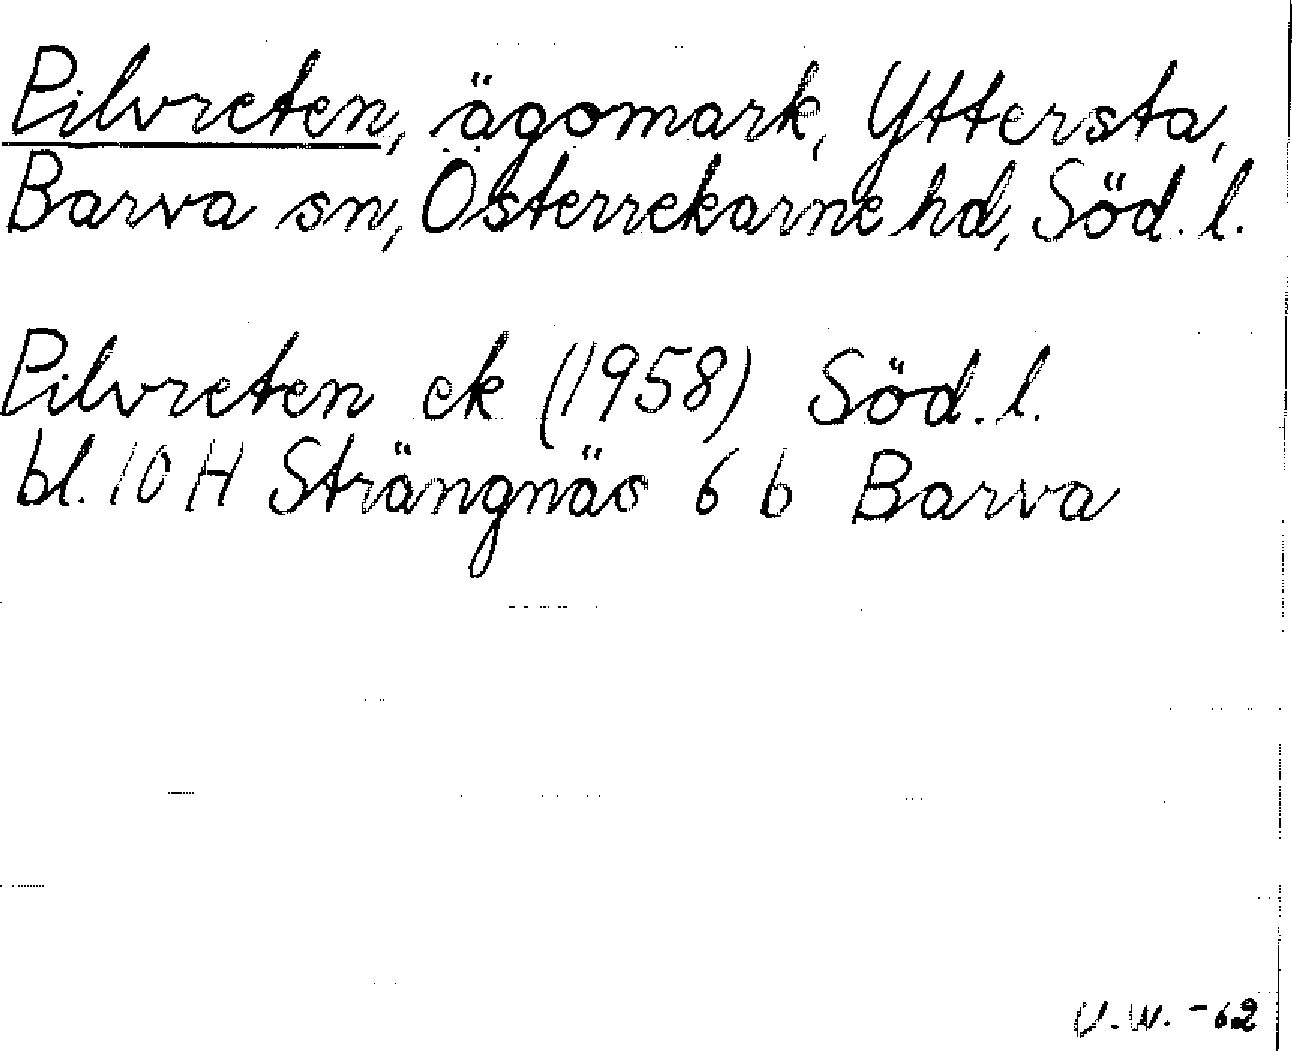 Pilvreten, ägomark, Yttersta,
Barva sn, Österrekarne hd, Söd. l.
Pilvreten ek (1958) Söd. l.
bl. 10 H Strängnäs 6 b Barva
V.W. -62